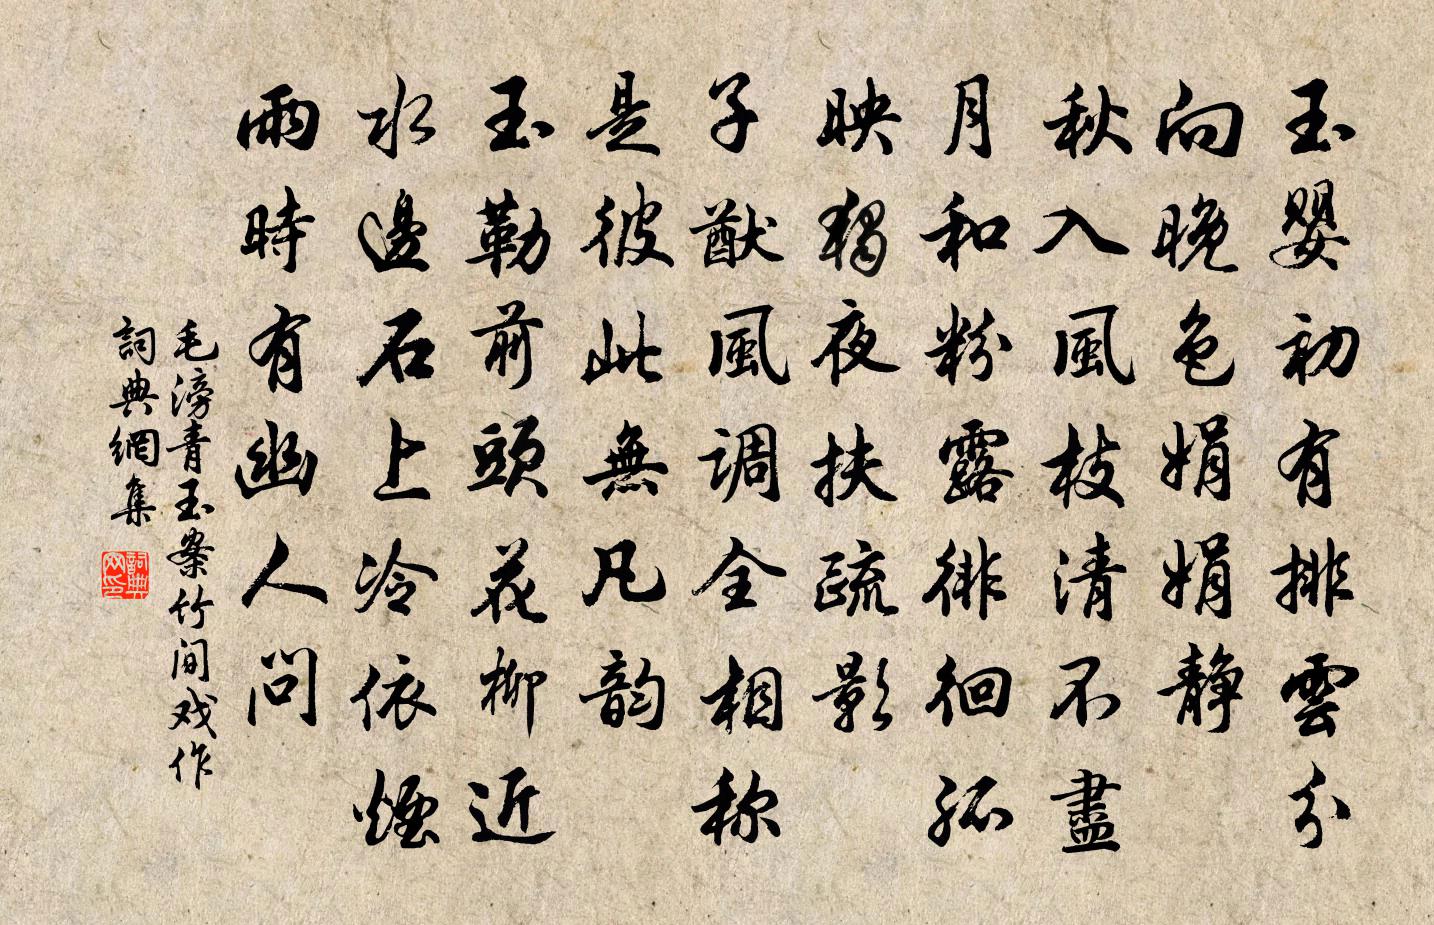 玉嬰初有排雲分
向晚色娟娟靜
秋入風枝清不盡
月和粉露徘徊孤
映獨夜扶疏影
子猷風调全相称
是彼此無凡韵
玉勒前頭花柳近
水邊石上冷依煙
雨時有幽人问
毛滂青玉案竹间戏作
詞典網集
詞典网印